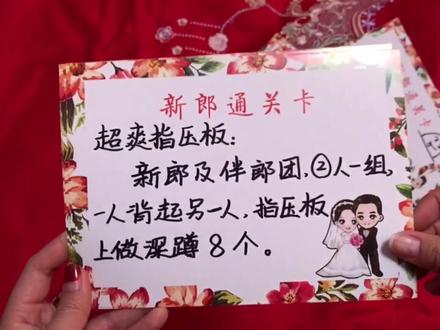 新郎通关卡
超爽指压板:
新郎及伴郎团,②人一组,
一人背起另一人,指压板
上做深蹲8个。